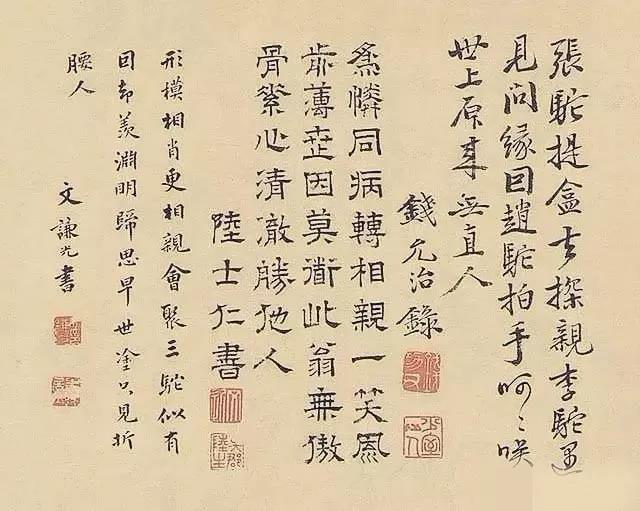 張駝提盒去探親李駝遇
見問緣因趙駝拍手呵々咲
世上原來無直人
錢允治錄
為憐同病轉相親一笑風
前薄世因莫道此翁無傲
骨素心清澈勝他人
陸士仁書
形模相肖更相親會聚三駝似有
因却羨淵明歸思早世塗只見折
腰人
文謙光書